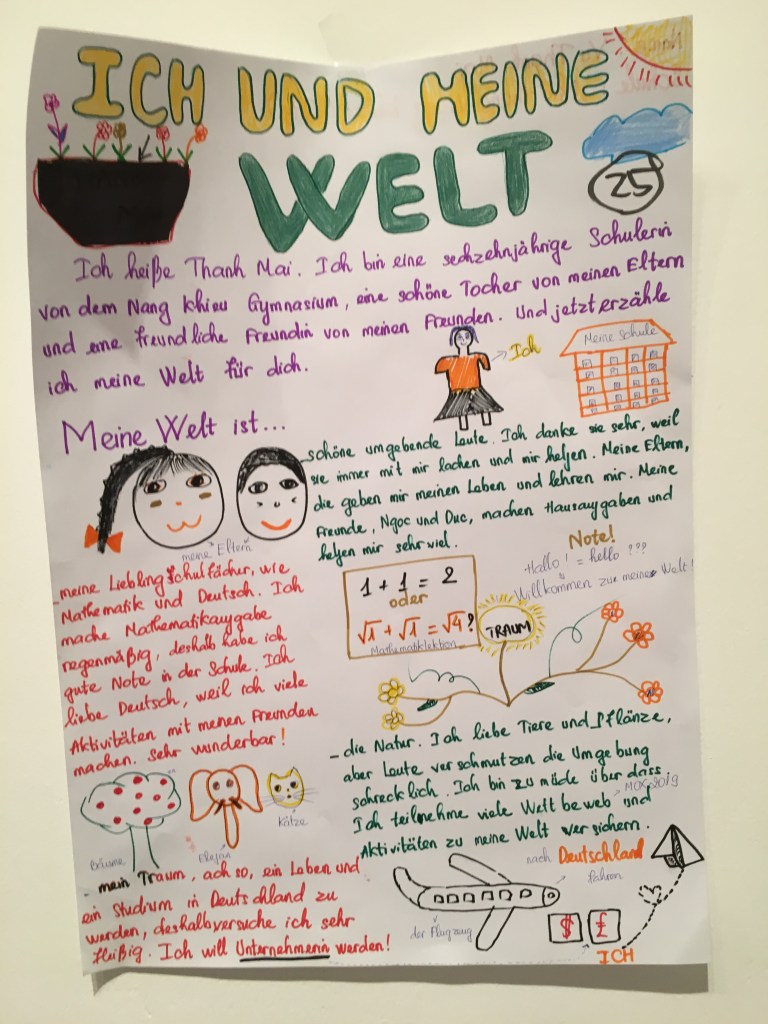 ICH UND MEINE
WELT
25
Ich heiße Thanh Mai. Ich bin eine sechzehnjährige Schulerin
von dem Nang Khieu Gymnasium, eine schöne Tocher von meinen Eltern
und eine freundliche Freundin von meinen Freunden. Und jetzt erzähle
ich meine Welt für dich.
Ich
Meine Schule
Meine Welt ist...
meine Eltern
schöne umgebende Laute. Ich danke sie sehr, weil
sie immer mit mir lachen und mir helfen. Meine Eltern,
die geben mir meinen Laben und lehren mir. Meine
Freunde, Ngoc und Duc, machen Hausaugaben und
helfen mir sehr viel.
- meine Lieblingschulfächer, wie
Mathematik und Deutsch. Ich
mache Mathematikaugabe
regenmäßig, deshalb habe ich
gute Note in der Schule. Ich
liebe Deutsch, weil ich viele
Aktivitäten mit meinen Freunden
machen. Sehr wunderbar!
1 + 1 = 2
oder
√1 + √1 = √4?
Mathematiklektion
Note!
Hallo! = hello ???
Willkommen zur meine Welt!
TRAUM
- die Natur. Ich liebe Tiere und Pflänze,
aber Laute verschmutzen die Umgebung
schrecklich. Ich bin zu müde über dass
Ich teilnehme viele Welt beweb und
MOX 2019
Aktivitäten zu meine Welt versichern.
Bäume
Elefan
Kätze
- mein Traum, ach so, ein Laben und
ein Studium in Deutschland zu
werden, deshalb versuche ich sehr
fleißig. Ich will Unternehmerin werden!
der Flugzug
nach Deutschland
fahren
$ £
ICH